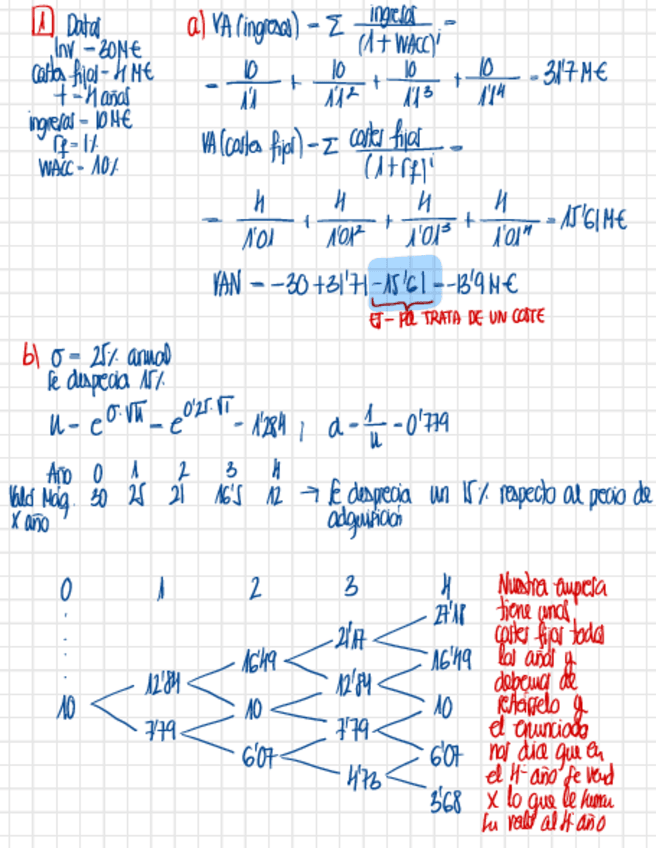 1 Datos
Inv - 30M€
costes fijos - 4 M€
t = 4 años
ingresos = 10 M€
rf = 1%
WACC = 10%
a) VA (ingresos) = Σ ingresos / (1 + WACC)^i =
= 10/1'1 + 10/1'1² + 10/1'1³ + 10/1'1⁴ = 31'7 M€
VA (costes fijos) = Σ costes fijos / (1 + rf)^i =
= 4/1'01 + 4/1'01² + 4/1'01³ + 4/1'01⁴ = 15'61 M€
VAN = -30 + 31'71 - 15'61 = -13'9 M€
TRATA DE UN COSTE
b) σ = 25% anual
Se desprecia 15%
u = e^σ·√n = e^0'25·√1 = 1'284 ; d = 1/u = 0'779
Año 0 1 2 3 4
Valor Maq. 30 25 21 16'5 12 → Se desprecia un 15% respecto al pecio de
x año adquisición
0 1 2 3 4
27'18
21'17
16'49 16'49
12'84 12'84
10 10 10
7'79 7'79
6'07 6'07
4'73
3'68
Nuestra empresa
tiene unos
costes fijos todos
los años y
debemos de
restárselo y
el enunciado
nos dice que en
el 4º año se vend
x lo que le
su valor al 4º año